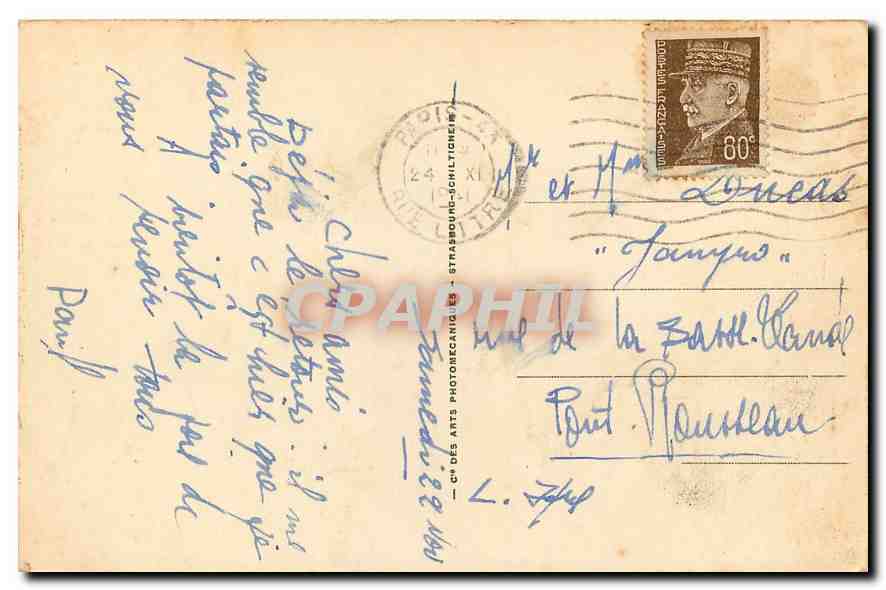 Samedi 22 Nov
Chers amis
Déjà le retour. il me
semble que c'est hier que je
partais. A bientôt la joie de
vous revoir tous
Mr et Mme Lucas
rue de la Basse
Pont Rousseau
L. Infre
POSTES FRANÇAISES
80c
PARIS
24 XI
RUE LITTRE
Cie DES ARTS PHOTOMECANIQUES - STRASBOURG-SCHILTIGHEIM
CPAPHIL